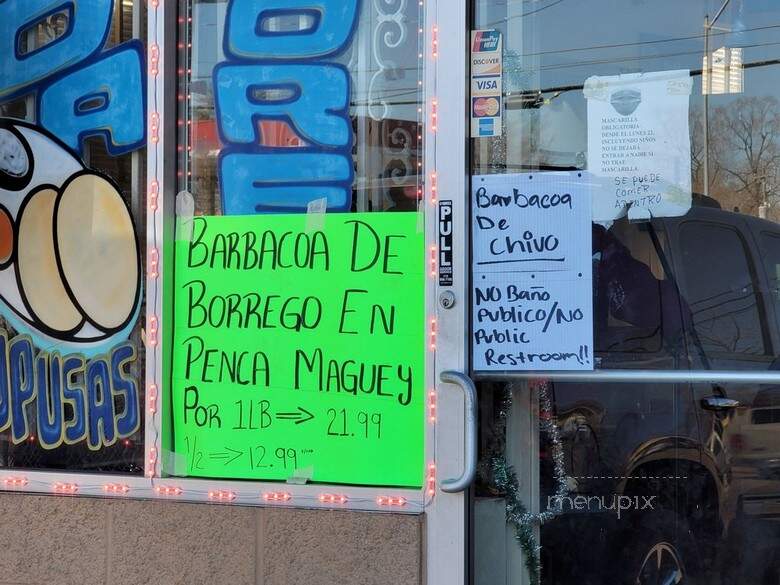 BARBACOA DE
BORREGO EN
PENCA MAGUEY
POR 1LB ⇒ 21.99
1/2 ⇒ 12.99
PUPUSAS
PULL
DISCOVER
VISA
MASCARILLA
OBLIGATORIA
DESDE EL LUNES 22,
INCLUYENDO NIÑOS
NO SE DEJARA
ENTRAR A NADIE SI
NO TRAE
MASCARILLA
SE PUEDE
COMER
ADENTRO
Barbacoa
De
Chivo
NO Baño
Publico/NO
Public
Restroom!!
menupix